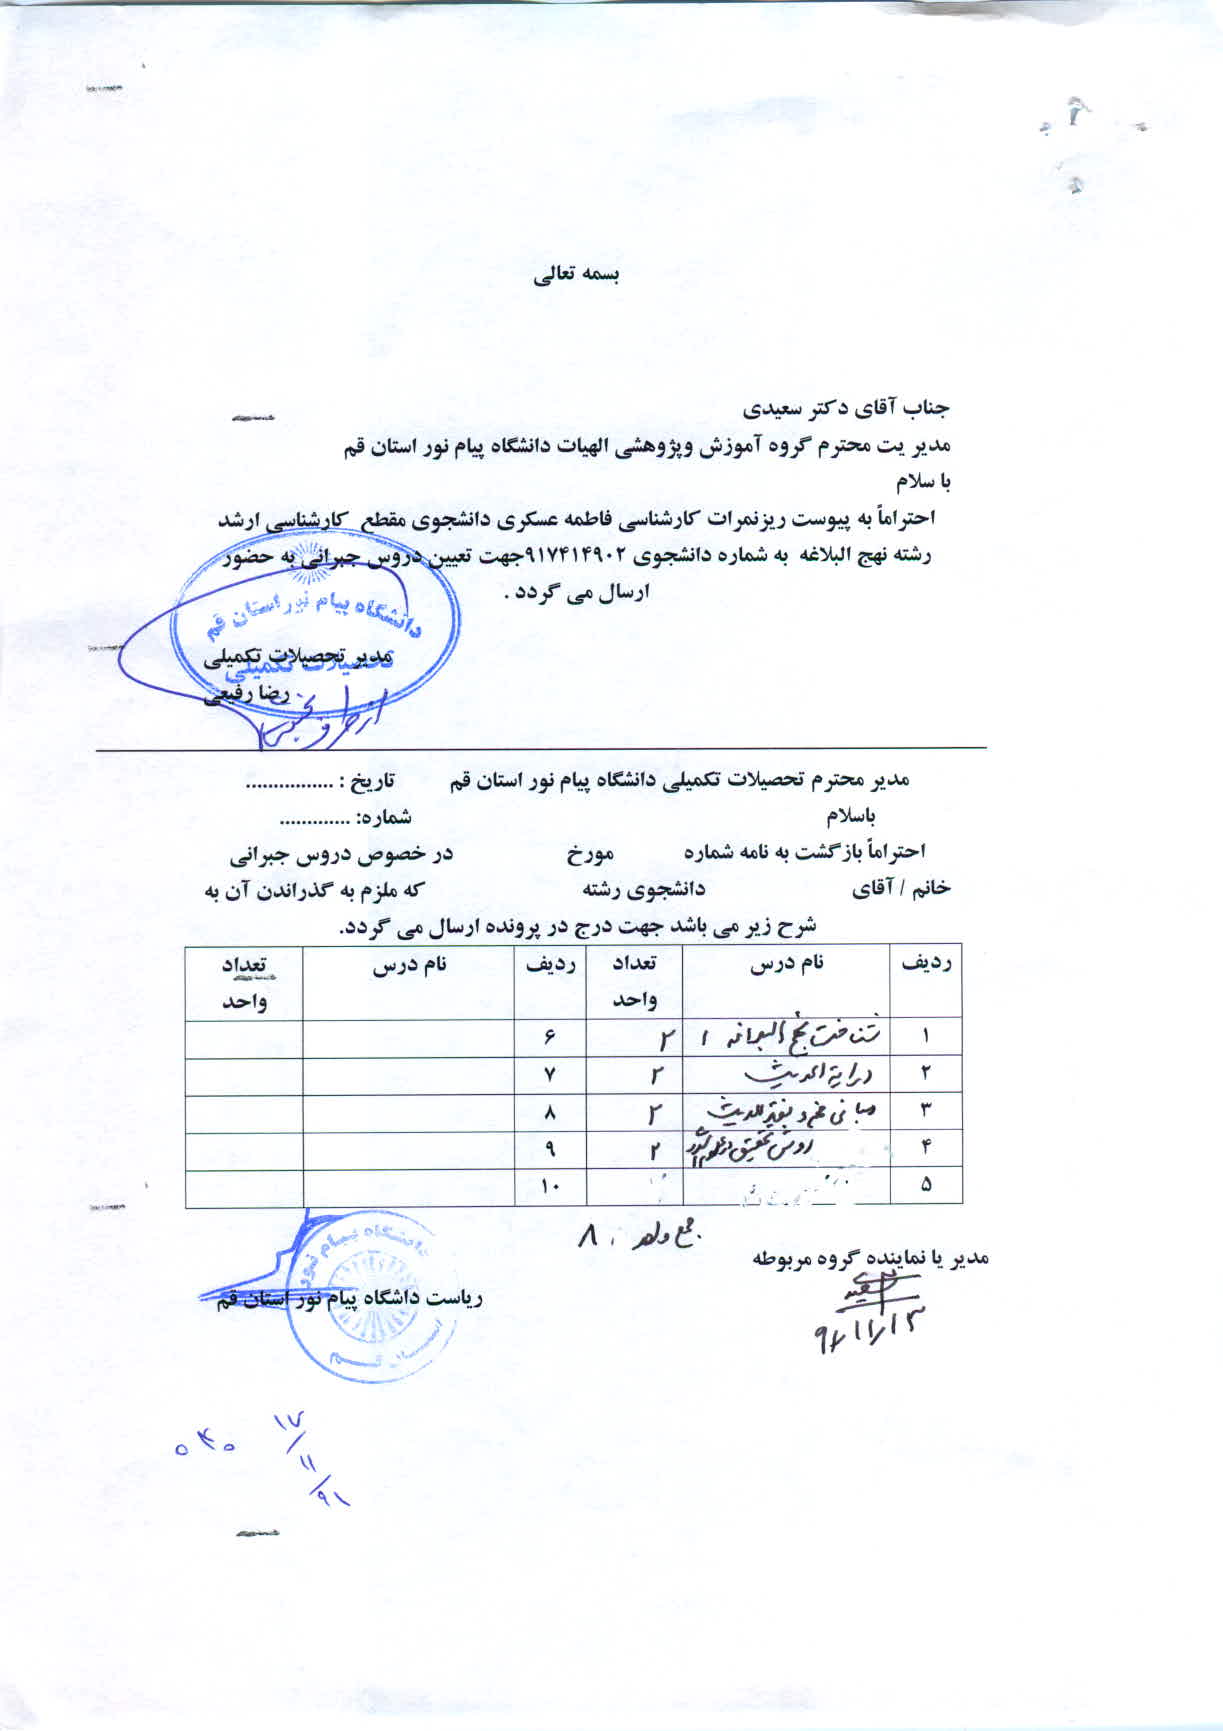 بسمه تعالی
جناب آقای دکتر سعیدی
مدیر یت محترم گروه آموزش وپژوهشی الهیات دانشگاه پیام نور استان قم
با سلام
احتراماً به پیوست ریزنمرات کارشناسی فاطمه عسکری دانشجوی مقطع کارشناسی ارشد
رشته نهج البلاغه به شماره دانشجوی ۹۱۷۴۱۴۹۰۲جهت تعیین دروس جبرانی به حضور
ارسال می گردد .
دانشگاه پیام نور استان قم
تحصیلات تکمیلی
مدیر تحصیلات تکمیلی
رضا رفیعی
از طرف
مدیر محترم تحصیلات تکمیلی دانشگاه پیام نور استان قم تاریخ : ................
باسلام شماره: .............
احتراماً بازگشت به نامه شماره مورخ در خصوص دروس جبرانی
خانم / آقای دانشجوی رشته که ملزم به گذراندن آن به
شرح زیر می باشد جهت درج در پرونده ارسال می گردد.
ردیف نام درس تعداد واحد ردیف نام درس تعداد واحد
۱ شناخت نهج البلاغه ۱ ۲ ۶
۲ درایة الحدیث ۲ ۷
۳ مبانی فهم و نقد الحدیث ۲ ۸
۴ روش تحقیق ۲ ۹
۵ ۱۰
جمع واحد : ۸
مدیر یا نماینده گروه مربوطه
سعیدی
۹۱/۱۱/۱۳
دانشگاه پیام نور
استان قم
ریاست داشگاه پیام نور استان قم
۱۷/۱۱/۹۱